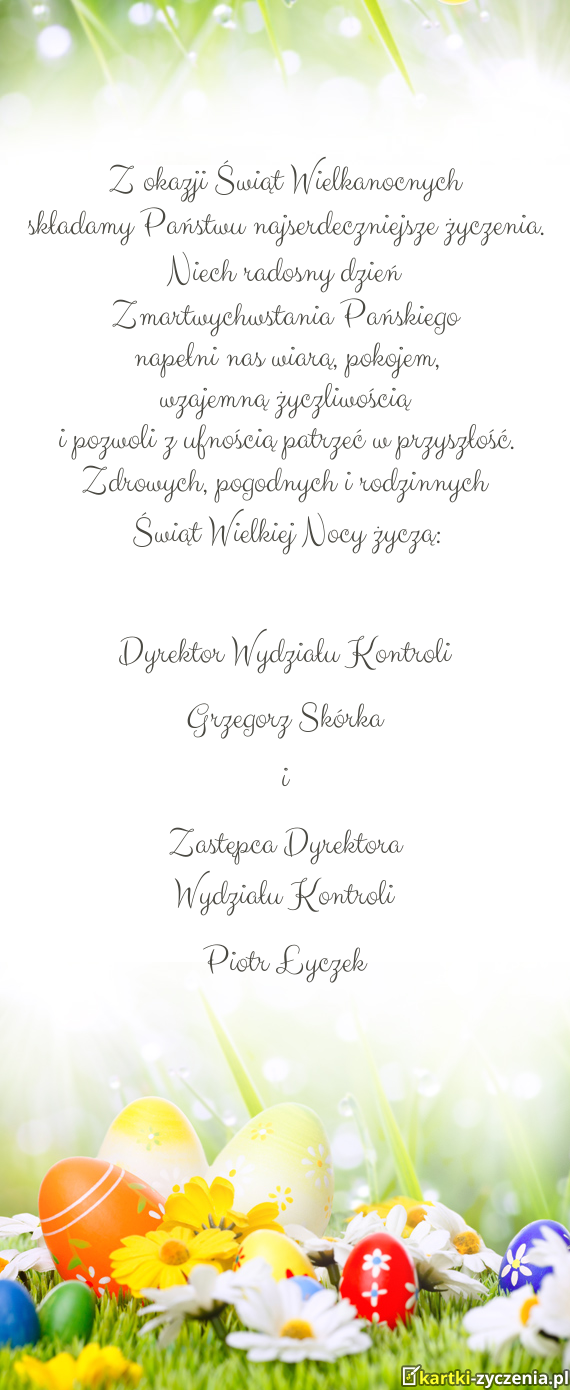 Z okazji Świąt Wielkanocnych
składamy Państwu najserdeczniejsze życzenia.
Niech radosny dzień
Zmartwychwstania Pańskiego
napełni nas wiarą, pokojem,
wzajemną życzliwością
i pozwoli z ufnością patrzeć w przyszłość.
Zdrowych, pogodnych i rodzinnych
Świąt Wielkiej Nocy życzą:
Dyrektor Wydziału Kontroli
Grzegorz Skórka
i
Zastępca Dyrektora
Wydziału Kontroli
Piotr Łyczek
kartki-zyczenia.pl